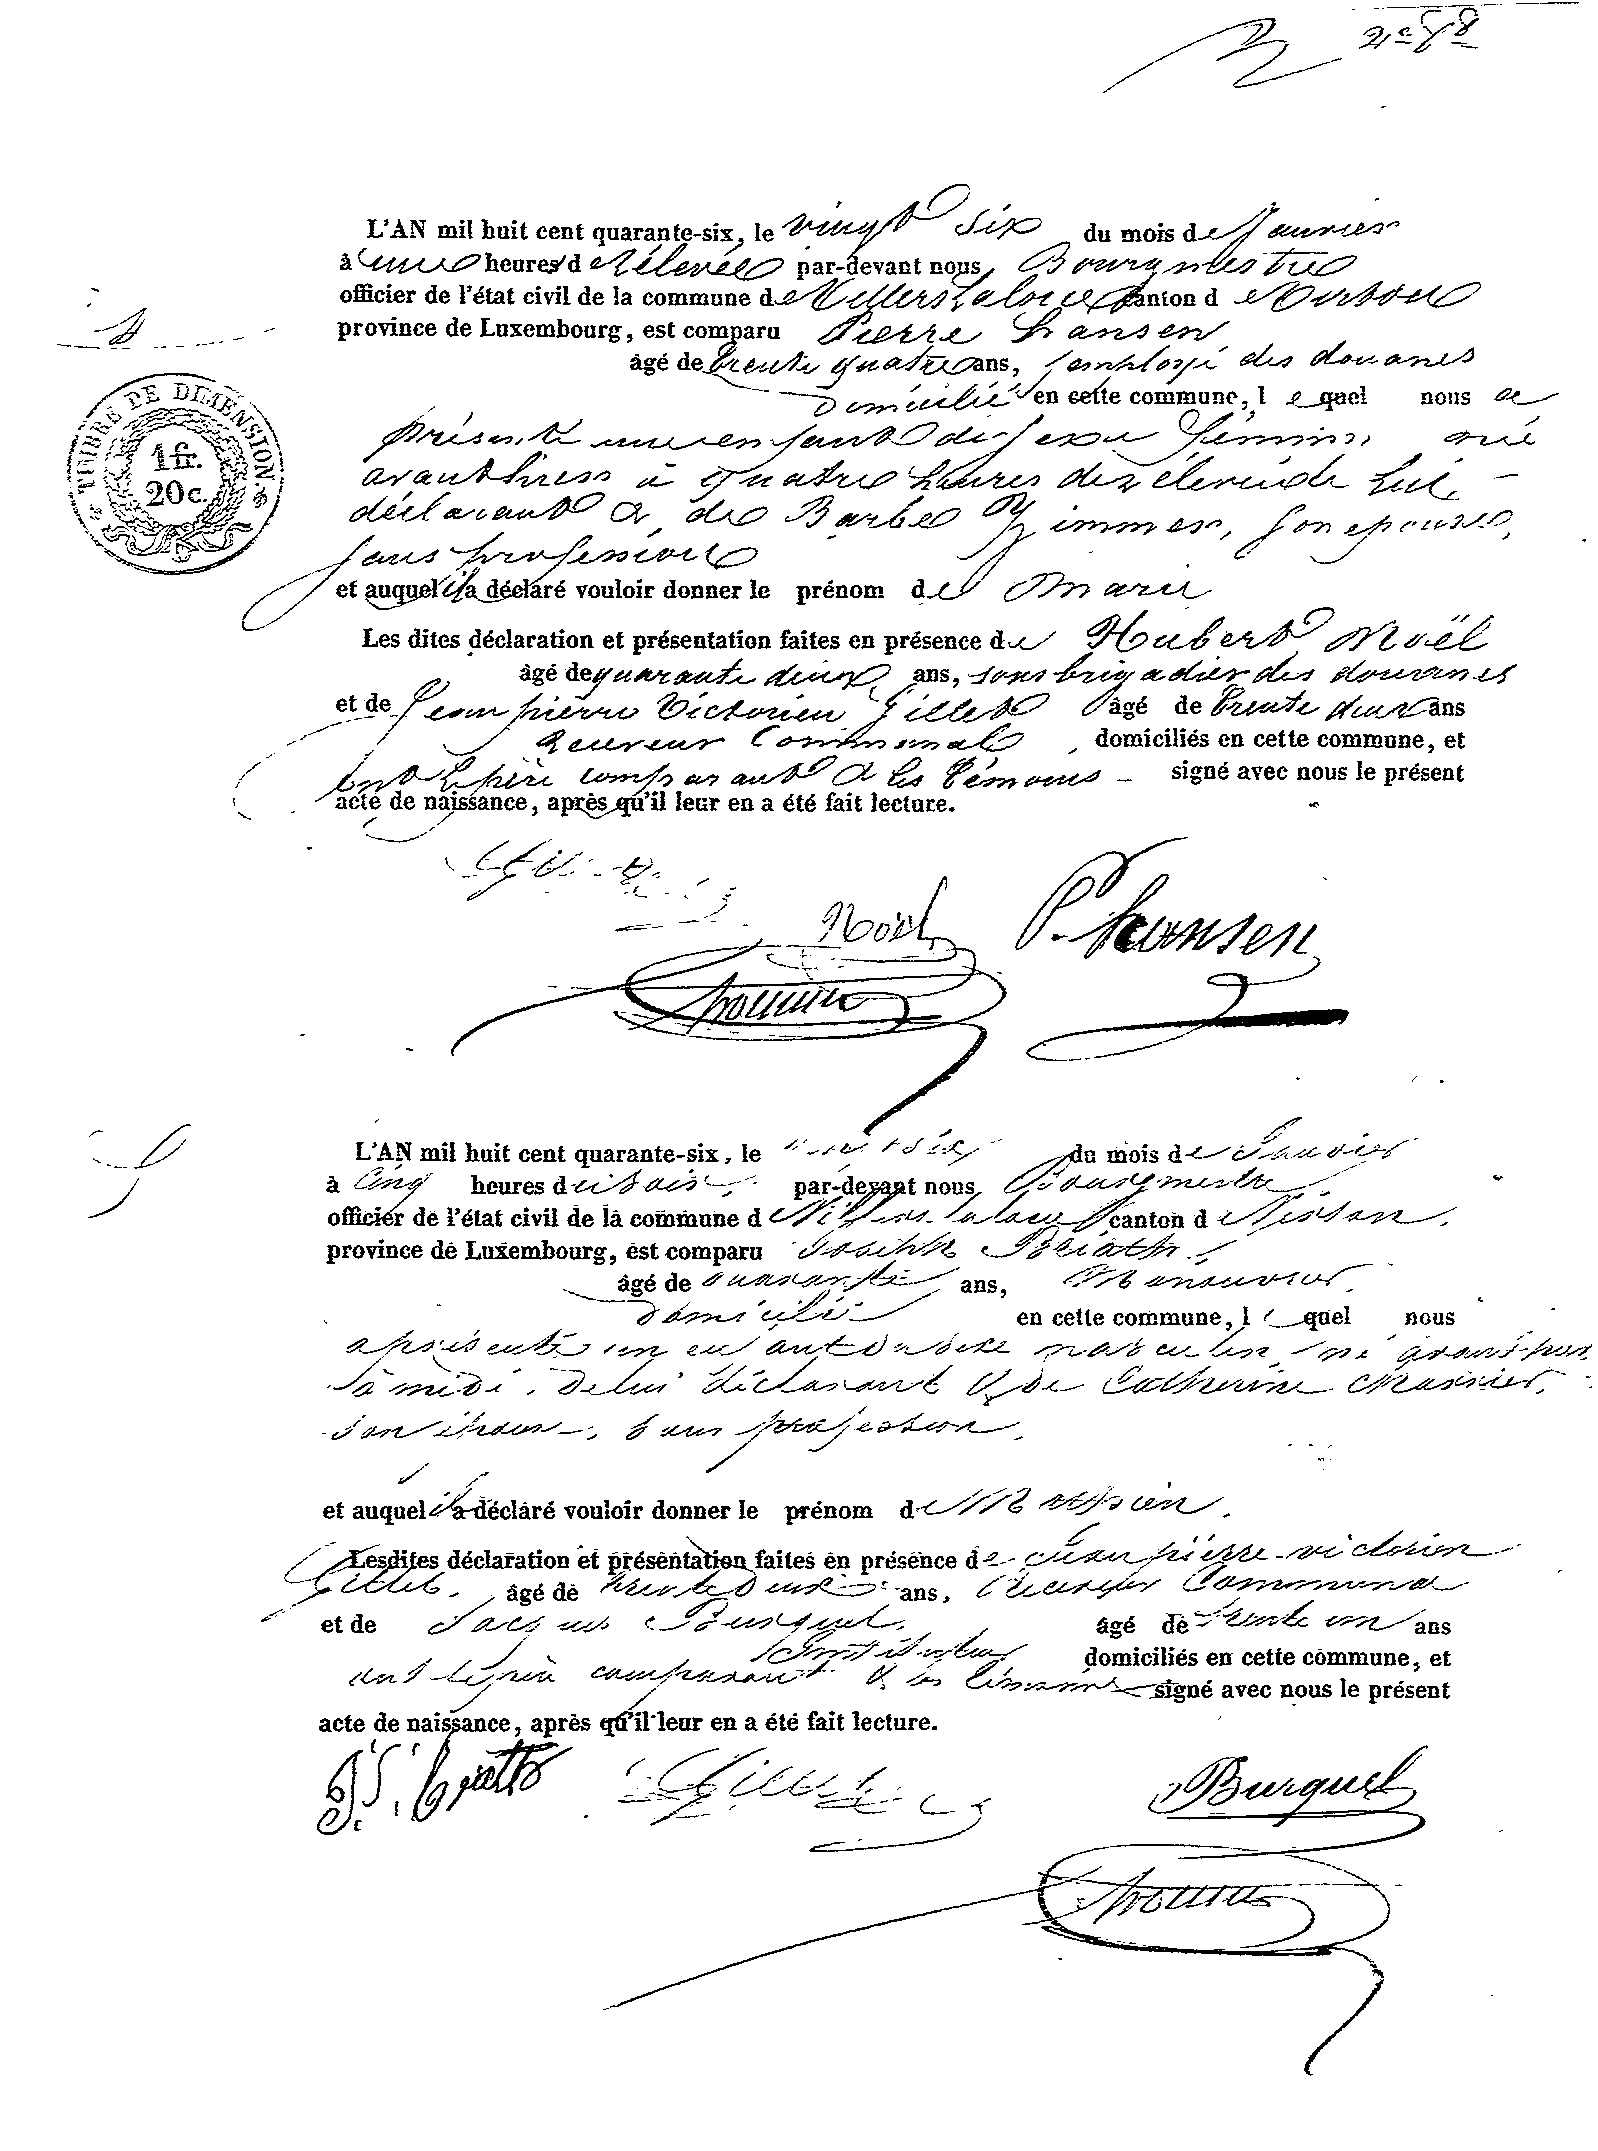 L'AN mil huit cent quarante-six, le vingt six du mois de Janvier
à une heures de rélevée par-devant nous, Bourgmestre
officier de l'état civil de la commune de Villers la loue canton de Virton
province de Luxembourg, est comparu Pierre Hansen
âgé de trente quatre ans, employé des douanes
domicilié en cette commune, lequel nous a
présenté une enfant du sexe féminin née
avant hier à quatre heures de rélevée de lui
déclarant & de Barbe Zimmer, son epouse,
sans profession
et auquel il a déclaré vouloir donner le prénom de Marie
Les dites déclaration et présentation faites en présence de Hubert Noël
âgé de quarante deux ans, sous brigadier des douanes
et de Jean pierre Victorien Gillet âgé de trente deux ans
receveur Communal domiciliés en cette commune, et
ont le père comparant & les témoins signé avec nous le présent
acte de naissance, après qu'il leur en a été fait lecture.
Noël P. Hansen
TIMBRE DE DIMENSION
1 fr.
20 c.
L'AN mil huit cent quarante-six, le du mois de Janvier
à Cinq heures du soir, par-devant nous, Bourgmestre
officier de l'état civil de la commune de Villers-la loue canton de Virton.
province de Luxembourg, est comparu Joseph
âgé de quarante ans, Manouvrier
domicilié en cette commune, lequel nous
a présenté un enfant du sexe masculin, né avant hier
à midi, de lui déclarant & de Catherine
son épouse, sans profession.
et auquel il a déclaré vouloir donner le prénom de
Les dites déclaration et présentation faites en présence de jean pierre victorien
Gillet. âgé de trente deux ans, Receveur Communal
et de Jacques Burquel, âgé de trente un ans
Instituteur domiciliés en cette commune, et
ont le père comparant & les témoins signé avec nous le présent
acte de naissance, après qu'il leur en a été fait lecture.
Gillet Burquel